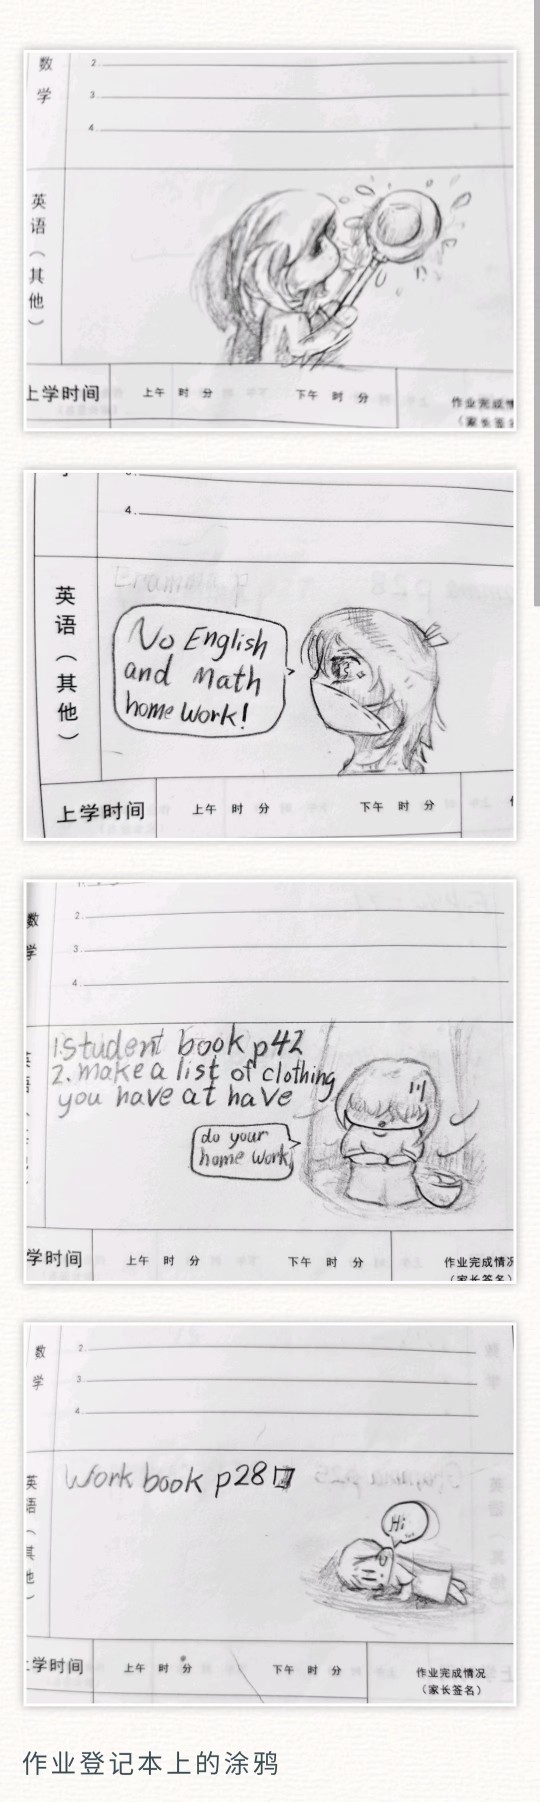 数
学
2.
3.
4.
英
语
（
其
他
）
上学时间
上午 时 分
下午 时 分
作业完成情
（家长签名
4.
英
语
（
其
他
）
No English
and Math
home work!
上学时间
上午 时 分
下午 时 分
数
学
2.
3.
4.
1.student book p42
2. make a list of clothing
you have at have
do your
home work
学时间
上午 时 分
下午 时 分
作业完成情况
（家长签名）
数
学
2.
3.
4.
英
语
（
其
他
）
Work book p28
Hi
上学时间
上午 时 分
下午 时 分
作业完成情况
（家长签名）
作业登记本上的涂鸦